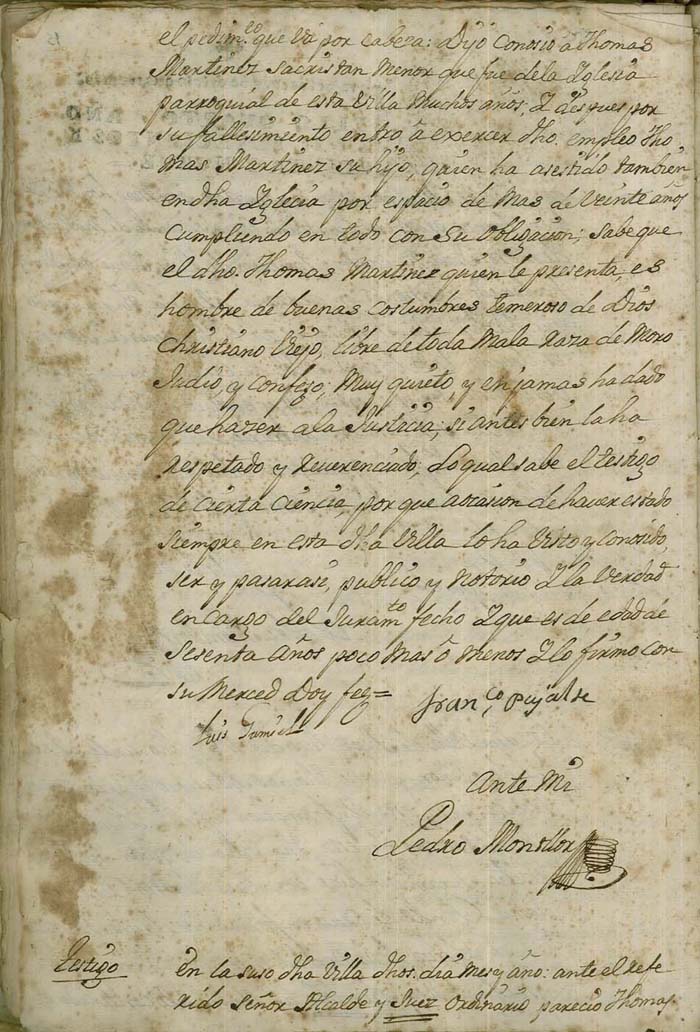 el pedimto. que vá por cabeza: Dijo Conosió â Thomas
Martinez Sacristan Menor que fue dela Iglesia
parroquial de esta Villa Muchos años, Y despues por
su fallesimiento entro â exercer dho. empleo Tho
mas Martinez su hijo, quien ha asestido tambien
en dha Iglecia por espacio de Mas de Veinte años
Cumpliendo en todo con Su obligacion; Sabe que
el dho. Thomas Martinez quien le presenta, es
hombre de buenas costumbres temeroso de Dios
Christiano Viejo, libre de toda Mala Raza de Moro
Judio, y Confezo; Muy quieto, y en jamas ha dado
que hazer ala Justicia; si antes bien la ha
Respetado y Reverenciado; Lo qual sabe el testigo
de Cierta Ciencia, por que aocasion de haver estado
Siempre en esta dha Villa lo ha Visto y Conosido,
ser y pasar asi, publico y Notorio Y la Verdad
en Cargo del Juramto. fecho Y que es de edad de
Sesenta Años poco Mas ô Menos Y lo firmo con
su Merced Doy fee=
Franco. Pujalte
Luis
Ante Mi
Pedro Monllor
Testigo
En la suso dha Villa dhos. dia Mes y año: ante el Refe
rido Señor Alcalde y Juez Ordinario parecio Thomas